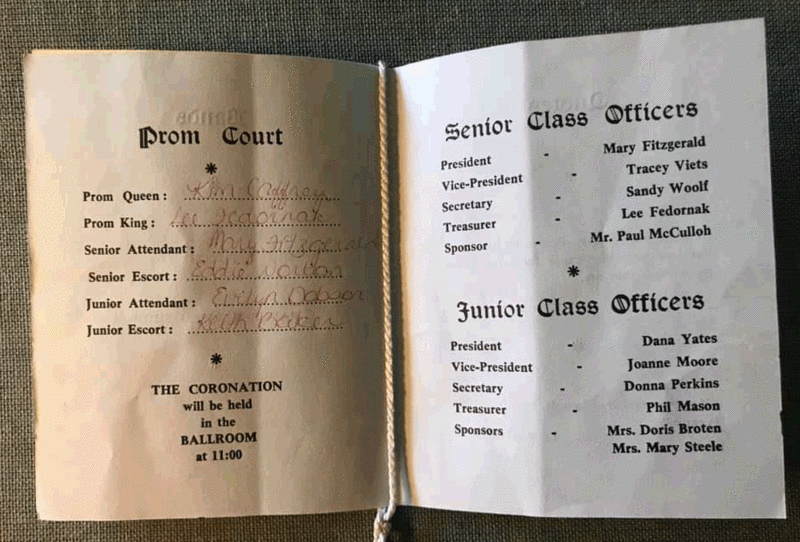 Prom Court
*
Prom Queen: Kim Caffrey
Prom King: Lee Fedornak
Senior Attendant: Mary Fitzgerald
Senior Escort: Eddie
Junior Attendant: Evelyn Dobson
Junior Escort: Keith Baker
*
THE CORONATION
will be held
in the
BALLROOM
at 11:00
Senior Class Officers
President - Mary Fitzgerald
Vice-President - Tracey Viets
Secretary - Sandy Woolf
Treasurer - Lee Fedornak
Sponsor - Mr. Paul McCulloh
*
Junior Class Officers
President - Dana Yates
Vice-President - Joanne Moore
Secretary - Donna Perkins
Treasurer - Phil Mason
Sponsors - Mrs. Doris Broten
Mrs. Mary Steele